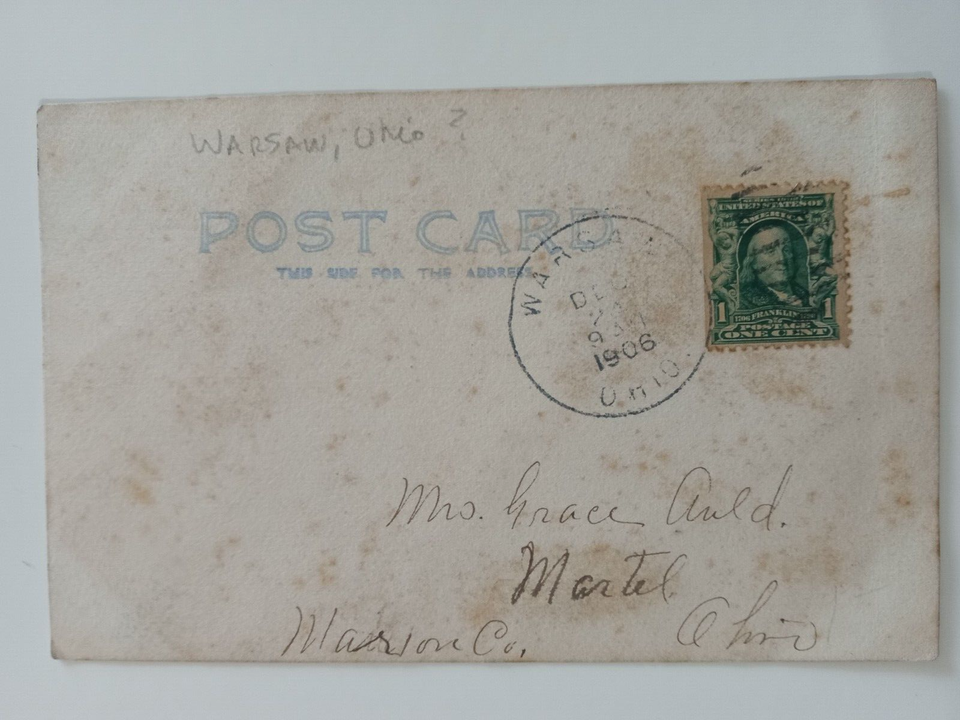 WARSAW, OHIO ?
POST CARD
THIS SIDE FOR THE ADDRESS.
WARSAW
DEC
9 AM
1906
OHIO.
SERIES 1902
UNITED STATES OF
AMERICA
1 1
1706 FRANKLIN 1790
POSTAGE
ONE CENT
Mrs. Grace Auld.
Martel
Marion Co. Ohio